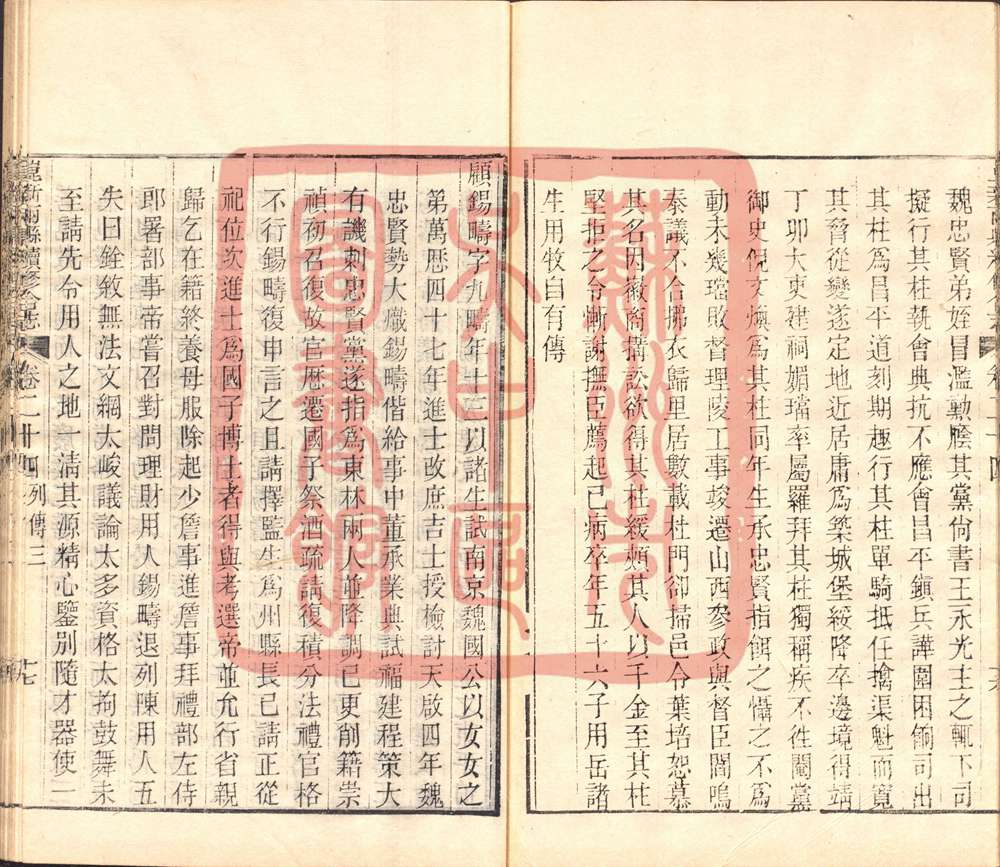 魏忠賢弟姪冒濫勳廕其黨尚書王永光主之輒下司
擬行其柱執會典抗不應會昌平鎮兵譁圍困餉司出
其柱爲昌平道刻期趣行其柱單騎抵任擒渠魁而寬
其脅從變遂定地近居庸爲築城堡綏降卒邊境得靖
丁卯大吏建祠媚璫率屬羅拜其柱獨稱疾不往閹黨
御史倪文煥爲其柱同年生承忠賢指餌之懾之不爲
動未幾璫敗督理陵工事竣遷山西參政與督臣閻鳴
泰議不合拂衣歸里居數載杜門卻掃邑令葉培恕慕
其名因徽商搆訟欲得其柱緩頰其人以千金至其柱
堅拒之令慚謝撫臣薦起已病卒年五十六子用岳諸
生用牧自有傳
崑新兩縣續修合志 卷二十四 列傳三 七
顧錫疇字九疇年十三以諸生試南京魏國公以女女之
第萬厯四十七年進士改庶吉士授檢討天啟四年魏
忠賢勢大熾錫疇偕給事中董承業典試福建程策大
有譏刺忠賢黨遂指爲東林兩人並降調已更削籍崇
禎初召復故官歷遷國子祭酒疏請復積分法禮官格
不行錫疇復申言之且請擇監生爲州縣長已請正從
祀位次進士爲國子博士者得與考選帝並允行省親
歸乞在籍終養母服除起少詹事進詹事拜禮部左侍
郎署部事帝嘗召對問理財用人錫疇退列陳用人五
失曰銓敘無法文網太峻議論太多資格太拘鼓舞未
至請先令用人之地一清其源精心鑒別隨才器使一
蘇州大
吳中區
圖書館